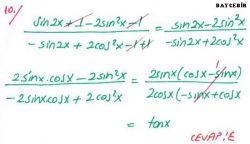 BAYCEBİR
10.) sin2x+1-2sin²x-1 / -sin2x+2cos²x-1+1 = sin2x-2sin²x / -sin2x+2cos²x
2sinx.cosx-2sin²x / -2sinxcosx+2cos²x = 2sinx(cosx-sinx) / 2cosx(-sinx+cosx
= tanx
CEVAP:E